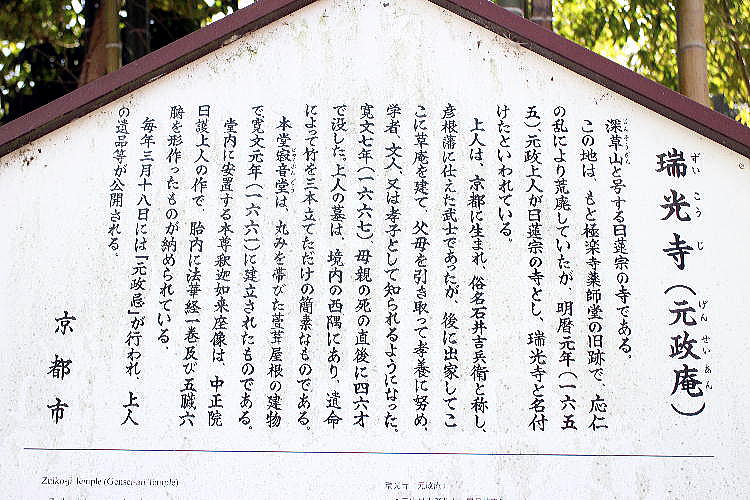 瑞光寺（元政庵）
ずいこうじ
げんせいあん
深草山と号する日蓮宗の寺である。
この地は、もと極楽寺薬師堂の旧跡で、応仁
の乱により荒廃していたが、明暦元年（一六五
五）、元政上人が日蓮宗の寺とし、瑞光寺と名付
けたといわれている。
上人は、京都に生まれ、俗名石井吉兵衛と称し、
彦根藩に仕えた武士であったが、後に出家してこ
こに草庵を建て、父母を引き取って孝養に努め、
学者、文人、又は孝子として知られるようになった。
寛文七年（一六六七）、母親の死の直後に四六才
で没した。上人の墓は、境内の西隅にあり、遺命
によって竹を三本立てただけの簡素なものである。
本堂寂音堂は、丸みを帯びた萱葺屋根の建物
で寛文元年（一六六一）に建立されたものである。
堂内に安置する本尊釈迦如来座像は、中正院
日護上人の作で、胎内に法華経一巻及び五臓六
腑を形作ったものが納められている。
毎年三月十八日には「元政忌」が行われ、上人
の遺品等が公開される。
京都市
Zuiko-ji Temple (Gensei-an Temple)
瑞光寺（元政庵）